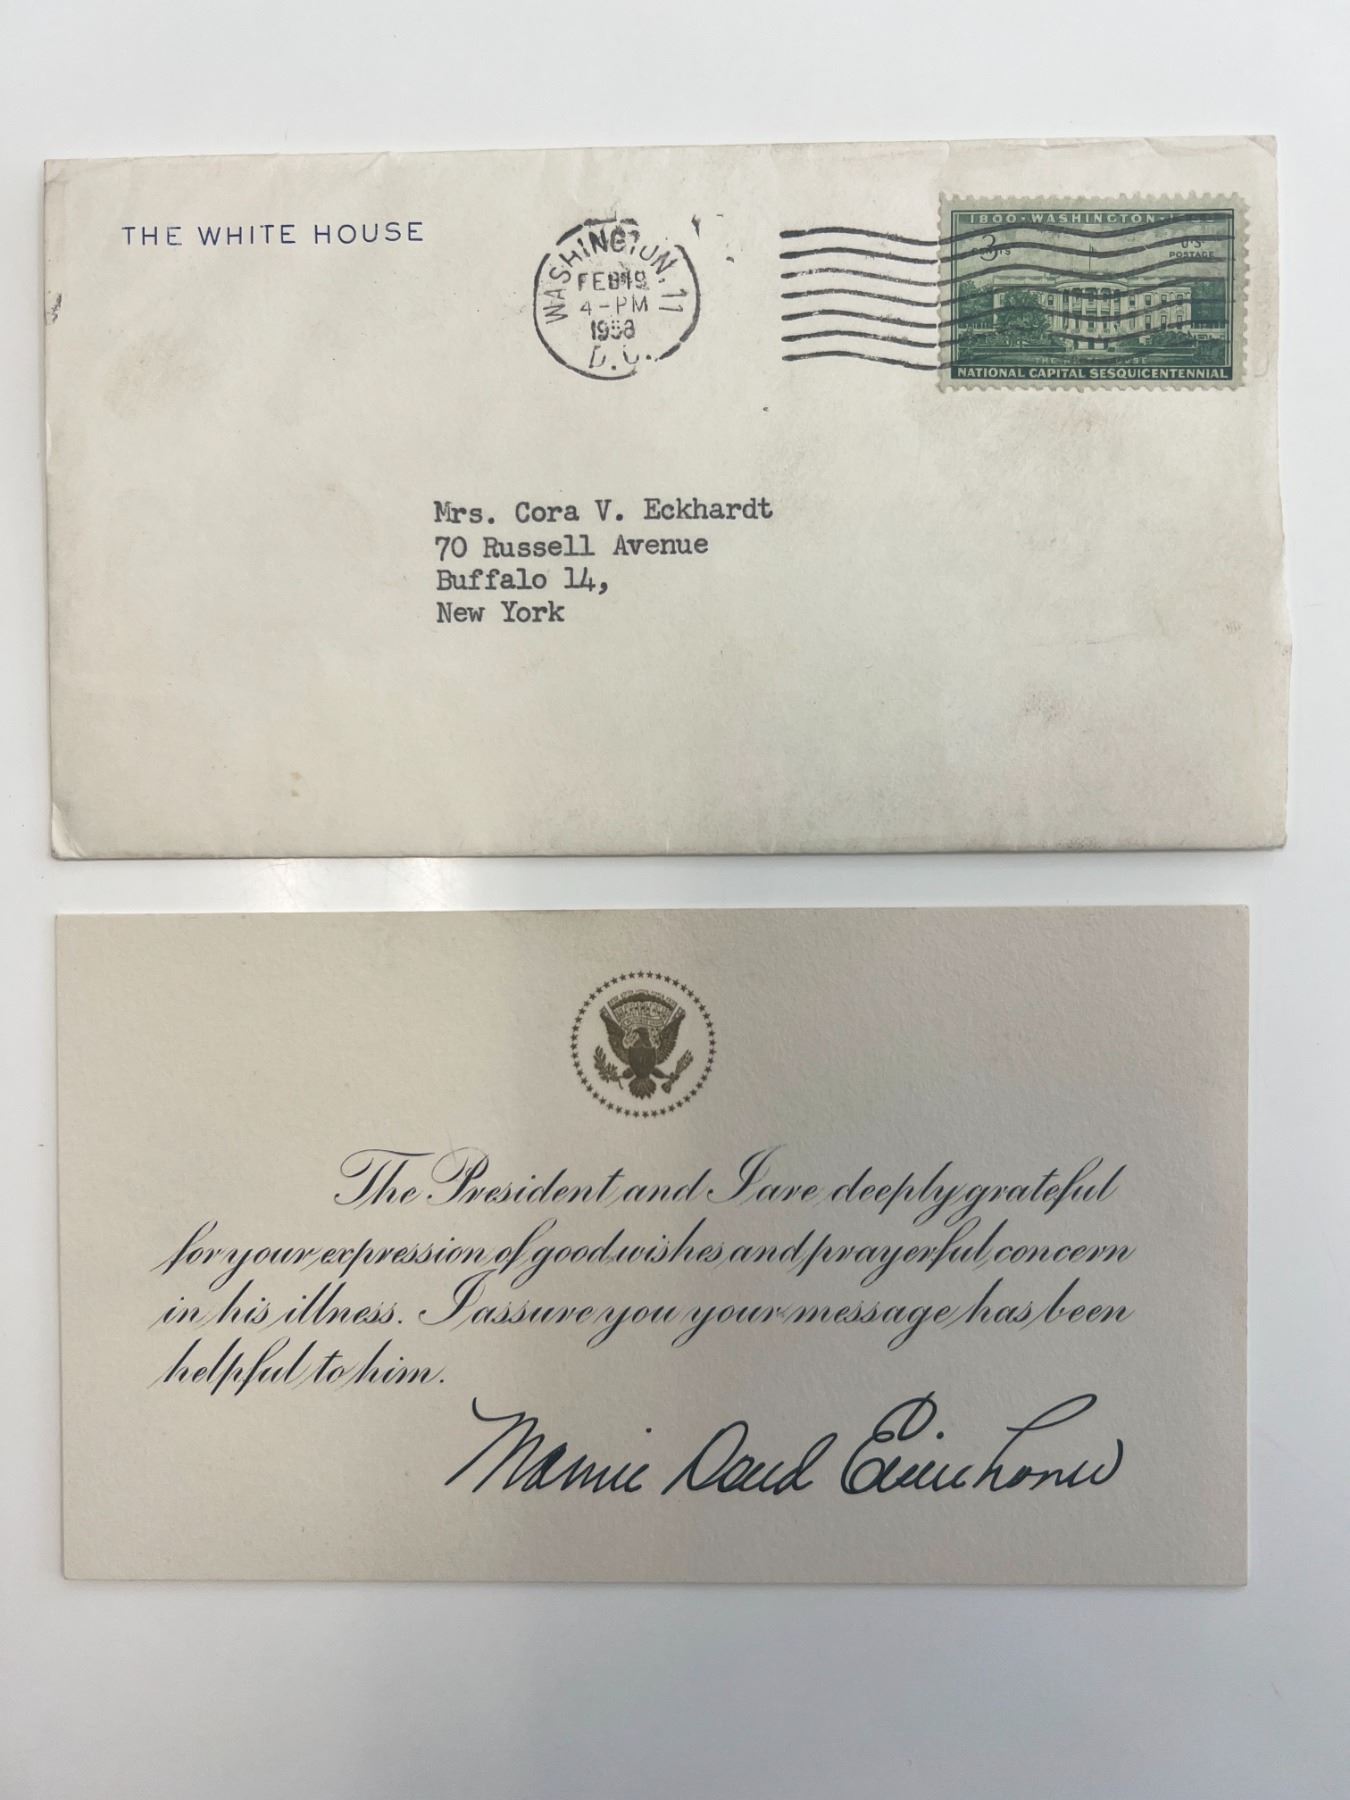 THE WHITE HOUSE
WASHINGTON, 11
FEB 19
4-PM
1958
D.C.
1800·WASHINGTON·
3
CENTS
U.S.
POSTAGE
THE WHITE HOUSE
NATIONAL CAPITAL SESQUICENTENNIAL
Mrs. Cora V. Eckhardt
70 Russell Avenue
Buffalo 14,
New York
The President and I are deeply grateful
for your expression of good wishes and prayerful concern
in his illness. I assure you your message has been
helpful to him.
Mamie Doud Eisenhower